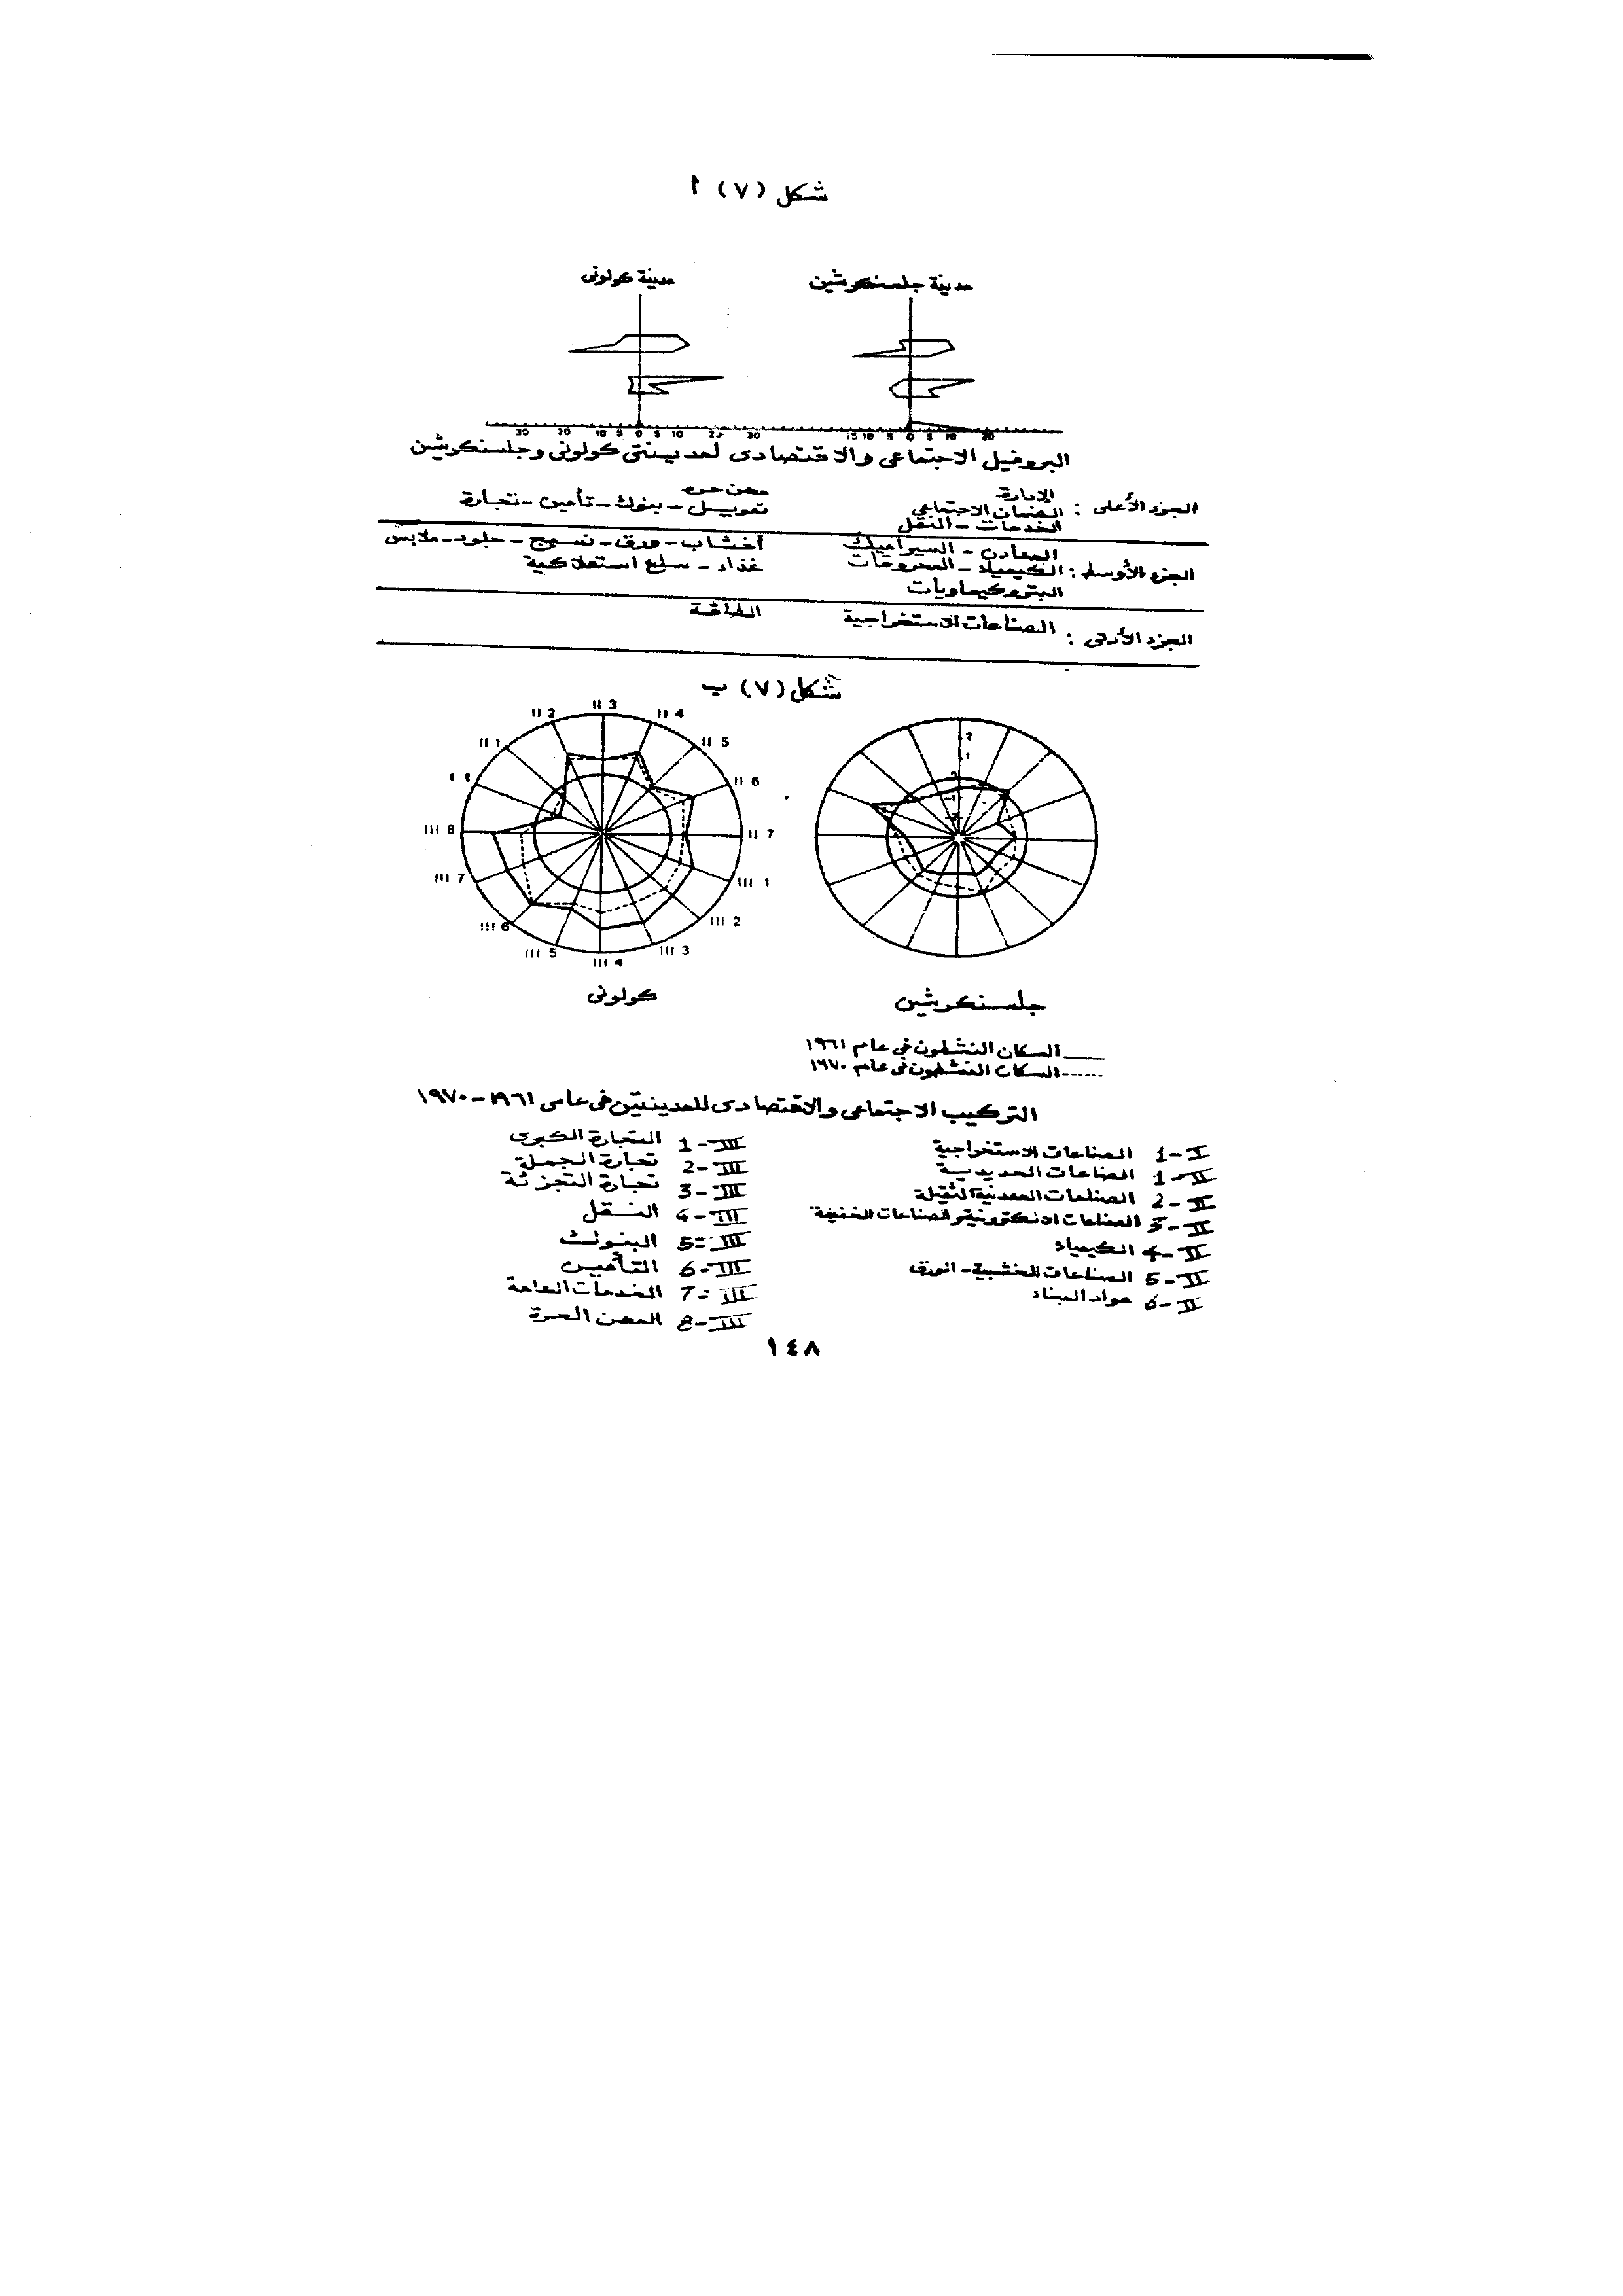 شكل (٧) ١
مدينة جلسنكرشين
مدينة كولونى
30 20 10 5 0 5 10 30
15 10 5 0 5 10 20
البروفيل الاجتماعى والاقتصادى لمدينتى كولونى وجلسنكرشين
الجزء الأعلى : الإدارة
الضمان الاجتماعى
الخدمات - النقل
مهن حره
تمويل - بنوك - تأمين - تجارة
الجزء الأوسط : المعادن - السيراميك
الكيمياء - المحروقات
البتروكيماويات
أخشاب - ورق - نسيج - جلود - ملابس
غذاء - سلع استهلاكية
الجزء الأدنى : الصناعات الاستخراجية
الطاقة
شكل (٧) ب
II 3
II 4
II 5
II 6
II 7
III 1
III 2
III 3
III 4
III 5
III 6
III 7
III 8
I 1
II 1
II 2
2
1
0
-1
-2
كولونى
جلسنكرشين
السكان النشطون فى عام ١٩٦١
السكان النشطون فى عام ١٩٧٠
التركيب الاجتماعى والاقتصادى للمدينتين فى عامى ١٩٦١ - ١٩٧٠
I - 1 الصناعات الاستخراجية
II - 1 الصناعات الحديدية
II - 2 الصناعات المعدنية الثقيلة
II - 3 الصناعات الالكترونية والصناعات الخفيفة
II - 4 الكيمياء
II - 5 الصناعات الخشبية - الورق
II - 6 مواد البناء
III - 1 التجارة الكبرى
III - 2 تجارة الجملة
III - 3 تجارة التجزئة
III - 4 النقل
III - 5 البنوك
III - 6 التأمين
III - 7 الخدمات العامة
III - 8 المهن الحرة
١٤٨